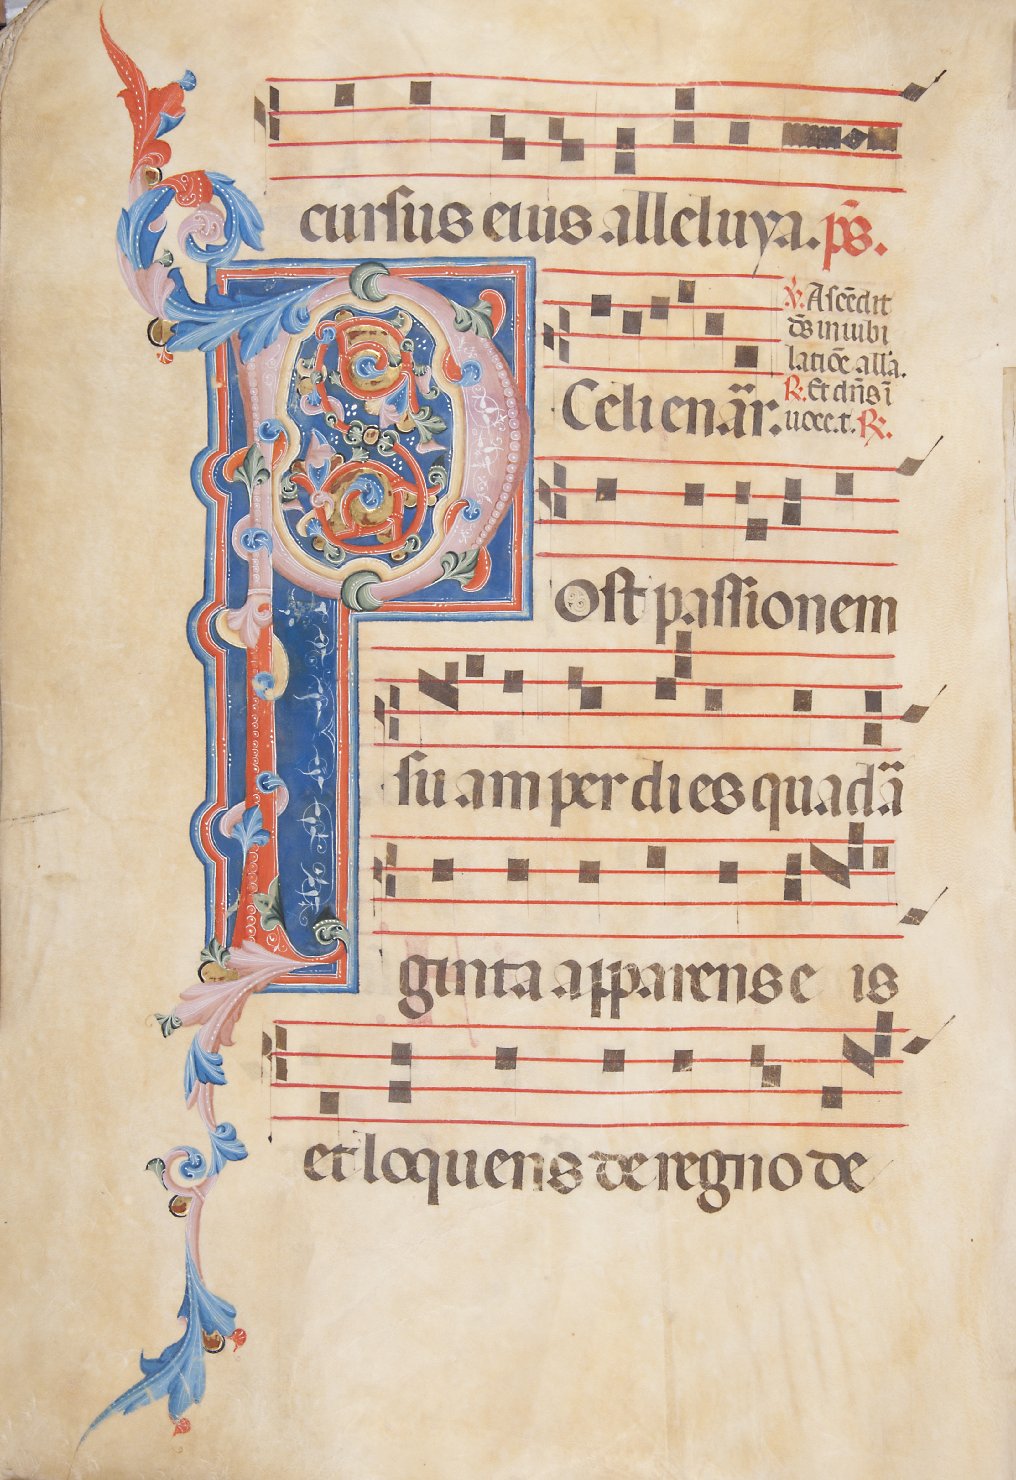 cursus eius alleluya. p̄s.
℣. Ascēdit
ds̄ in iubi
latiōe. all'a.
Celi enār. ℟. Et dn̄s ī
uoce. t. ℟.
Post passionem
suam per dies quadā
ginta apparens eis
et loquens de regno de